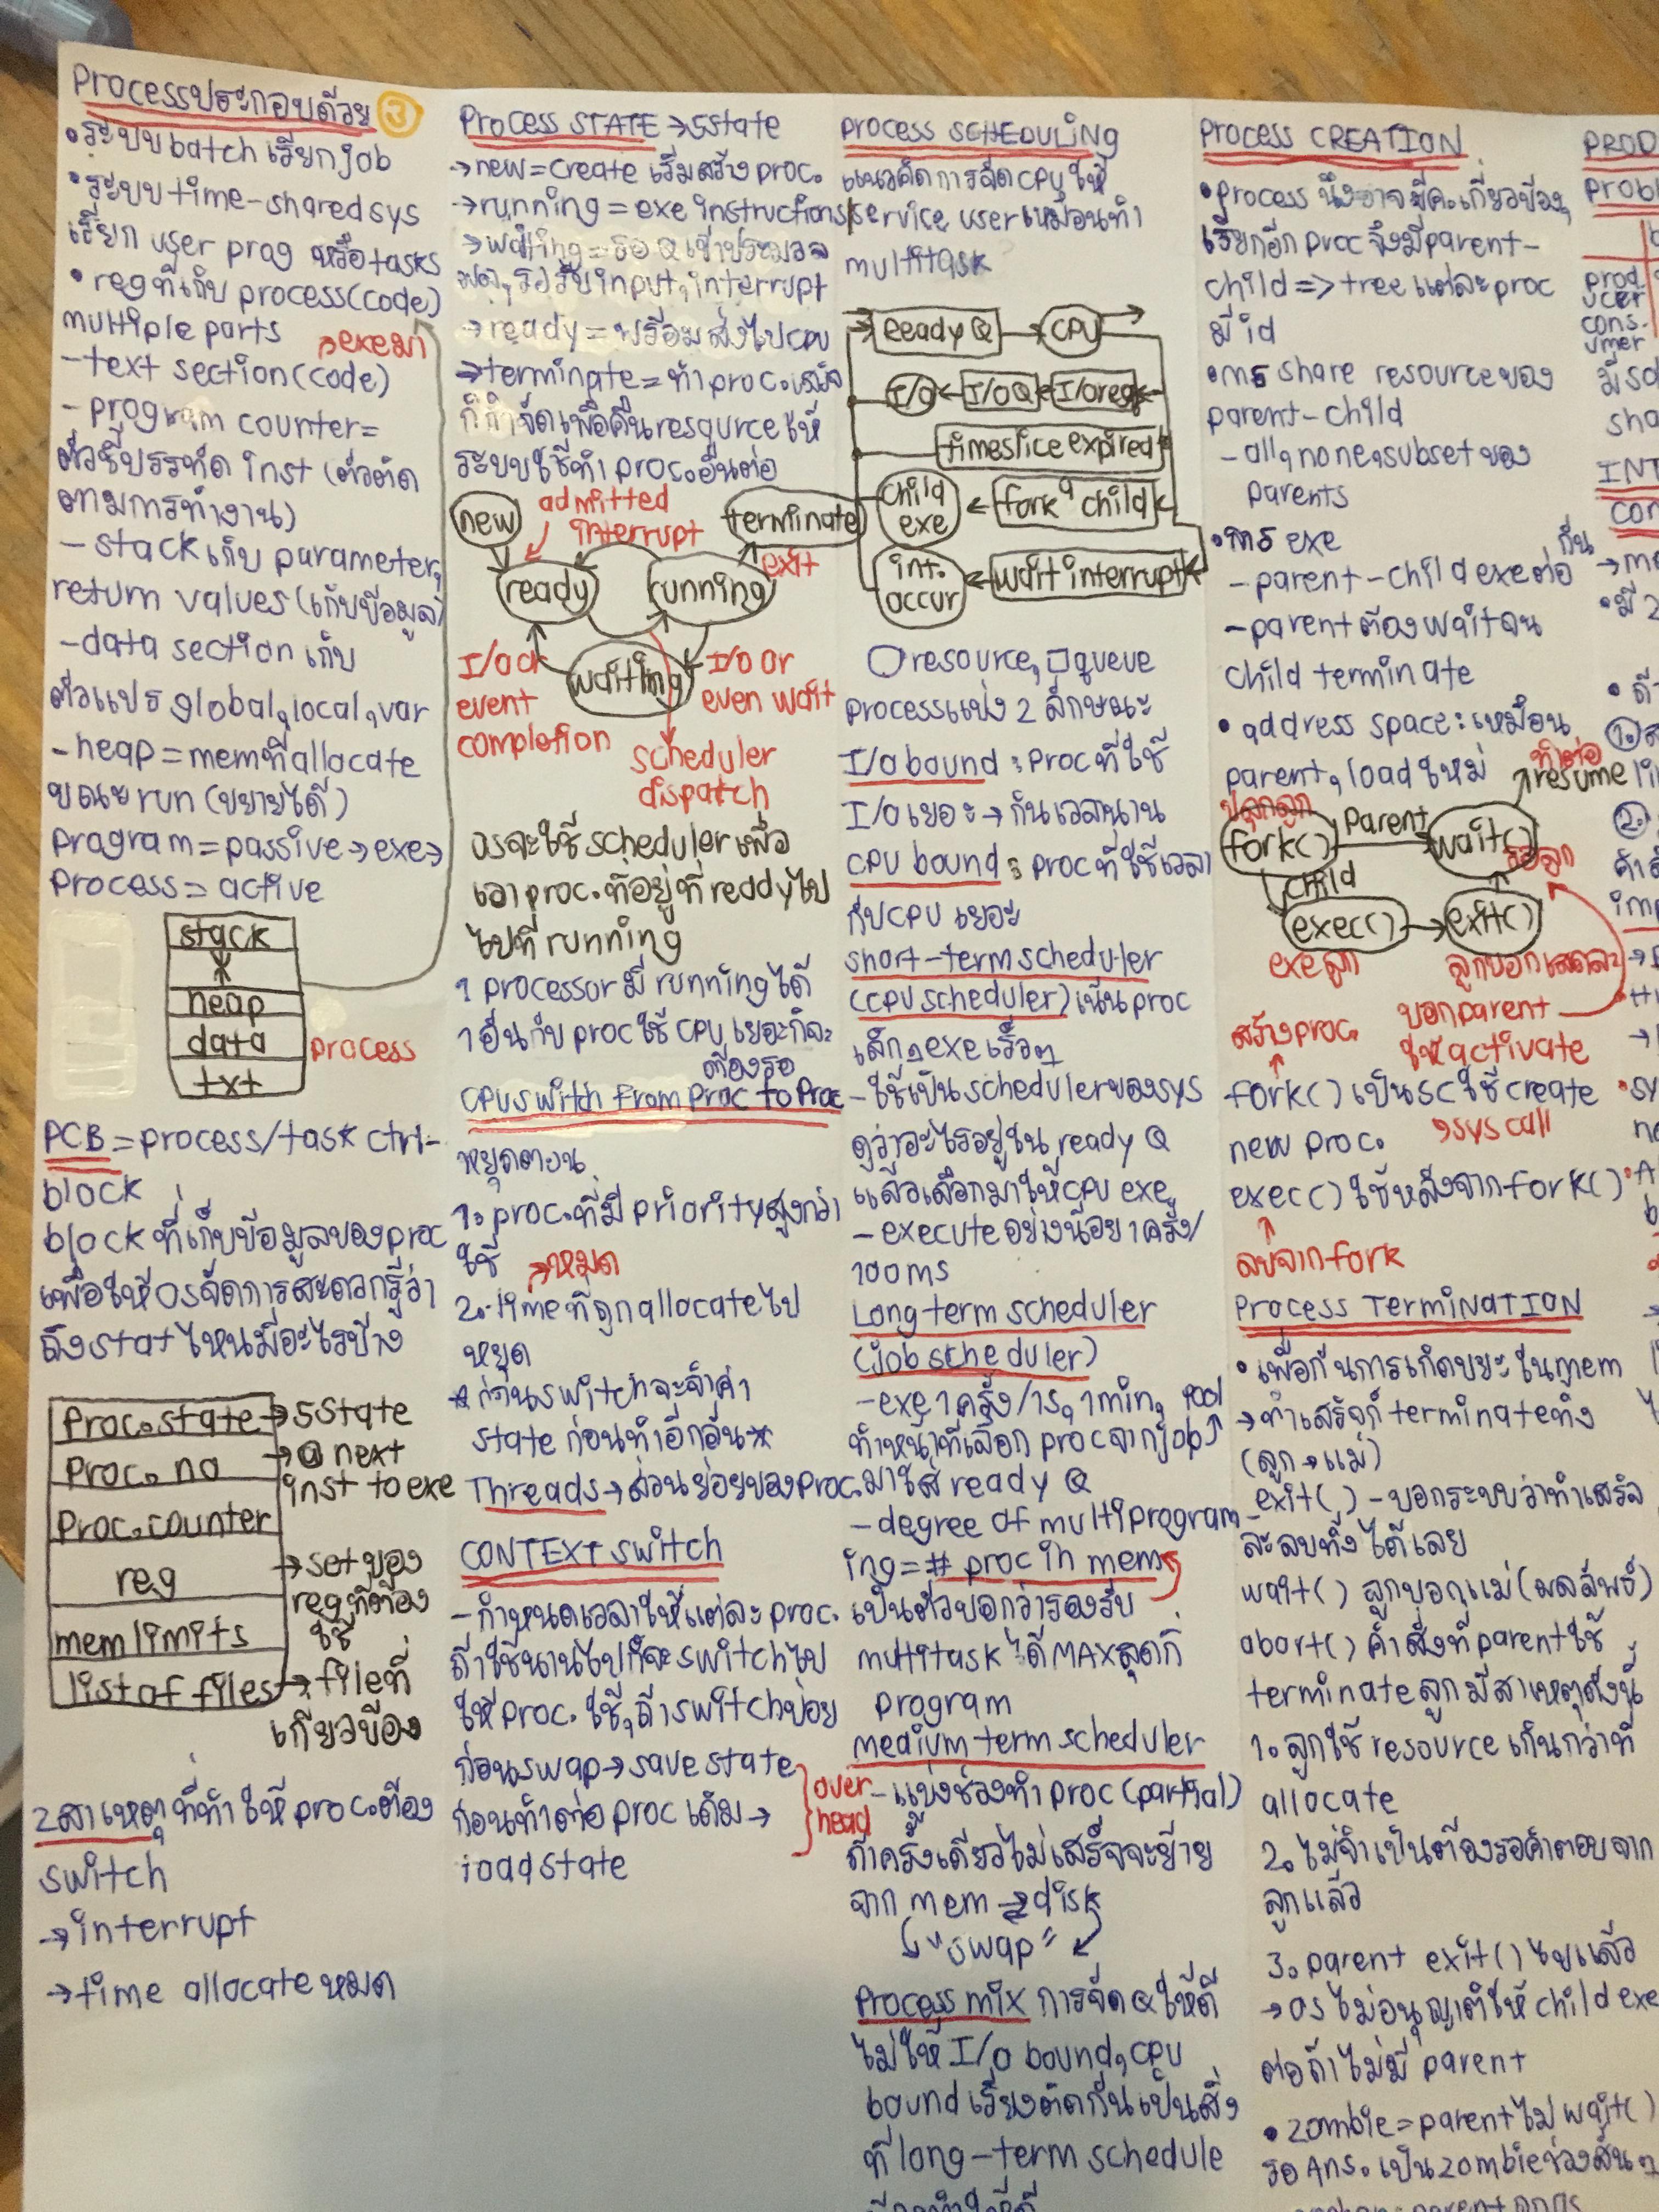 Processประกอบด้วย ③
•ระบบbatchเรียกjob
•ระบบtime-sharedsys
เรียก user prog หรือtasks
•regที่เก็บ process(code)
multiple parts
→exeมา
-text section(code)
-program counter=
ตัวชี้บรรทัด inst (ตัวติด
ตามการทำงาน)
-stackเก็บ parameter,
return values(เก็บข้อมูล)
-data sectionเก็บ
ตัวแปร global,local,var
-heap=memที่allocate
ขณะrun (ขยายได้)
program=passive→exe→
process=active
stack
heap
data
txt
process
PCB=process/task ctrl-
block
blockที่เก็บข้อมูลของproc
เพื่อให้OSจัดการสะดวกรู้ว่า
ถึงstatไหนมีอะไรบ้าง
proc.state→5state
proc.no
→@next
inst to exe
proc.counter
reg
→setของ
regที่ต้อง
ใช้
memlimits
listoffiles→fileที่
เกี่ยวข้อง
2สาเหตุที่ทำให้proc.ต้อง
switch
→interrupt
→time allocateหมด
Process STATE→5state
→new=create เริ่มสร้าง proc.
→running=exe instructions
→waiting=รอQเข้าประมวล
รอรับinput,interrupt
→ready=พร้อมส่งไปCPU
→terminate=ทำproc.เสร็จ
ก็กำจัดเพื่อคืนresourceให้
ระบบใช้ทำ proc.อื่นต่อ
new
admitted
interrupt
terminate
exit
ready
running
waiting
I/O or
event
completion
I/O or
even wait
scheduler
dispatch
OSจะใช้schedulerเพื่อ
เอาproc.ที่อยู่ที่readyไป
ไปที่running
1 processorมี runningได้
1อันกับprocใช้CPUเยอะก็จะ
ต้องรอ
CPUswitch from Proc to Proc
หยุดตอน
1.proc.ที่มีpriorityสูงกว่า
ใช้
→หมด
2.timeที่ถูกallocateไป
หยุด
*ก่อนswitchจะจำค่า
stateก่อนทำอีกอัน*
Threads→ส่วนย่อยของproc.
CONTEXT switch
-กำหนดเวลาให้แต่ละproc.
ถ้าใช้นานไปก็จะswitchไป
ให้proc.ใช้,ถ้าswitchบ่อย
ก่อนswap→savestate
ก่อนทำต่อprocเดิม→
loadstate
over
head
process SCHEDULING
แนวคิดการจัดCPUให้
service userเหมือนทำ
multitask
ReadyQ
CPU
I/O
I/OQ
I/Oreq
timeslice expired
child
exe
fork a child
int.
occur
wait interrupt
○resource,□queue
processแบ่ง2ลักษณะ
I/Obound:procที่ใช้
I/Oเยอะ→กินเวลานาน
CPU bound:procที่ใช้เวลา
กับCPUเยอะ
short-termscheduler
(CPUscheduler)เน้นproc
เล็กๆexeเรื่อยๆ
-ใช้เป็นschedulerของsys
ดูว่าอะไรอยู่ใน ready Q
แล้วเลือกมาให้CPU exe
-executeอย่างน้อย1ครั้ง/
100ms
Long term scheduler
(job scheduler)
-exe1ครั้ง/1s,1min,
pool
ทำหน้าที่เลือก procจากjob
มาใส่ ready Q
-degree of multiprogram
ing=#proc in mem
เป็นตัวบอกว่ารองรับ
multitaskได้MAXสุดกี่
program
medium term scheduler
-แบ่งช่องทำproc(partial)
ถ้าครั้งเดียวไม่เสร็จจะย้าย
จากmem→disk
"swap"
Process mixการจัดQให้ดี
ไม่ให้I/Obound,CPU
boundเรียงติดกันเป็นสิ่ง
ที่long-term schedule
Process CREATION
•processนึงอาจมีค.เกี่ยวข้อง,
เรียกอีกprocจึงมีparent-
child=>treeแต่ละproc
มีid
•การshare resourceของ
parent-child
-all,none,subsetของ
parents
•การexe
-parent-childexeต่อ
กัน
-parentต้องwaitจน
child terminate
•address space:เหมือน
parent,loadใหม่
ทำต่อ
resume
ปลุกลูก
fork()
parent
wait()
รอลูก
child
exec()
exit()
exeลูก
ลูกบอกเสดละ
บอกparent
ให้activate
สร้างproc.
fork()เป็นSCใช้create
new proc.
→sys call
exec()ใช้หลังจากfork()
ลบจากfork
PROCESS TERMINATION
•เพื่อกันการเกิดขยะในmem
→ทำเสร็จก็terminateทิ้ง
(ลูก→แม่)
-exit()-บอกระบบว่าทำเสร็จ
ละลบทิ้งได้เลย
wait()ลูกบอกแม่(ผลลัพธ์)
abort()คำสั่งที่parentใช้
terminateลูกมีสาเหตุดังนี้
1.ลูกใช้resourceเกินกว่าที่
allocate
2.ไม่จำเป็นต้องรอคำตอบจาก
ลูกแล้ว
3.parent exit()ไปแล้ว
→OSไม่อนุญาติให้childexe
ต่อถ้าไม่มีparent
•zombie=parentไม่wait()
รอAns.เป็นzombieช่วงสั้นๆ
PROD
prod
ucer
cons-
umer
INT